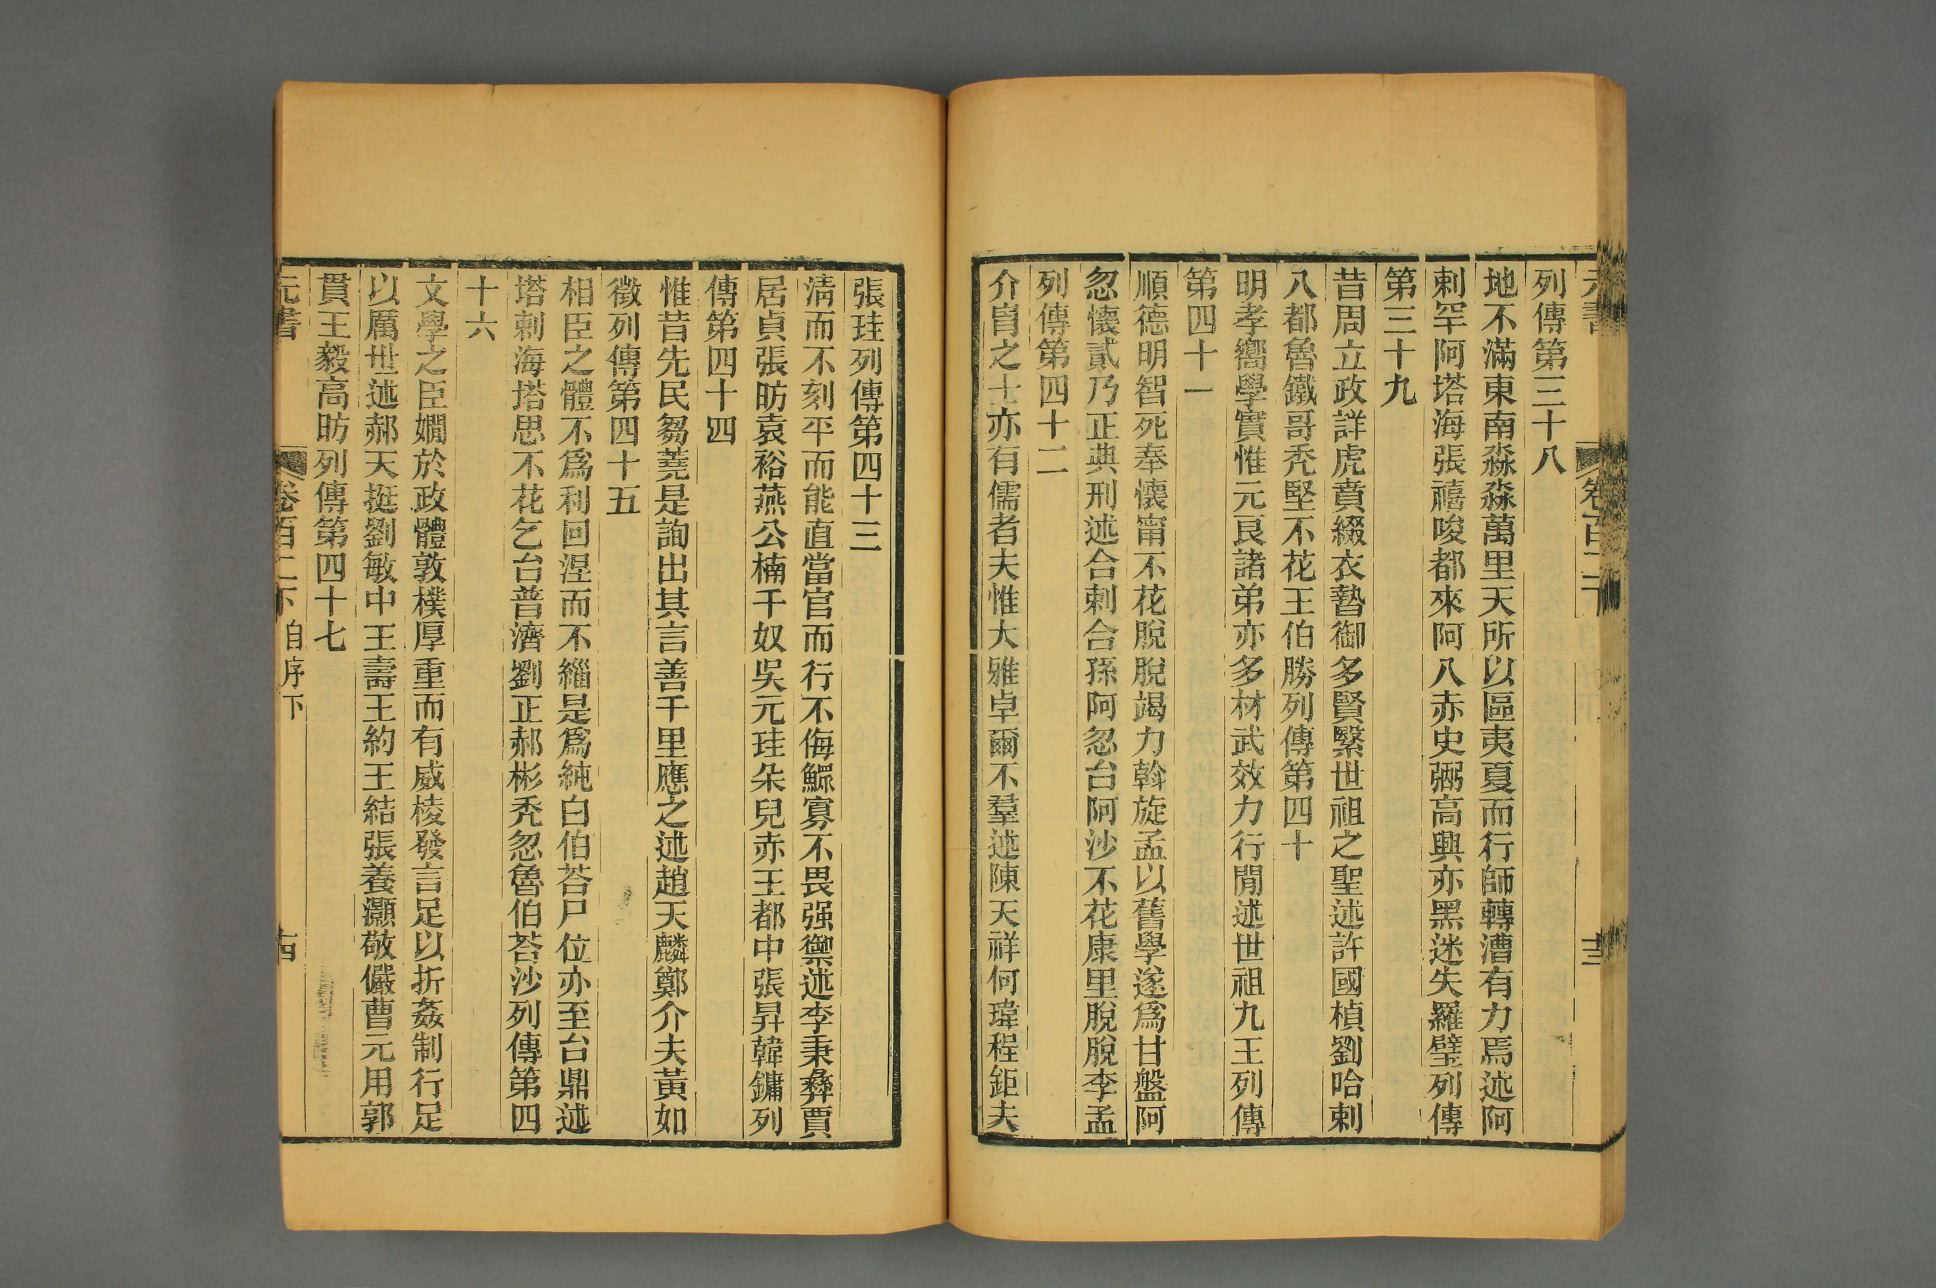 列傳第三十八
地不滿東南淼淼萬里天所以區夷夏而行師轉漕有力焉述阿
剌罕阿塔海張禧唆都來阿八赤史弼高興亦黑迷失羅璧列傳
第三十九
昔周立政詳虎賁綴衣暬御多賢繄世祖之聖述許國楨劉哈剌
八都魯鐵哥禿堅不花王伯勝列傳第四十
明孝嚮學實惟元良諸弟亦多材武效力行閒述世祖九王列傳
第四十一
順德明智死奉懷甯不花脫脫竭力斡旋孟以舊學遂爲甘盤阿
忽懷貳乃正典刑述合剌合孫阿忽台阿沙不花康里脫脫李孟
列傳第四十二
介冑之士亦有儒者夫惟大雅卓爾不羣述陳天祥何瑋程鉅夫
張珪列傳第四十三
淸而不刻平而能直當官而行不侮鰥寡不畏强禦述李秉彝賈
居貞張昉袁裕燕公楠千奴吳元珪朵兒赤王都中張昇韓鏞列
傳第四十四
惟昔先民芻蕘是詢出其言善千里應之述趙天麟鄭介夫黃如
徵列傳第四十五
相臣之體不爲利回涅而不緇是爲純白伯荅尸位亦至台鼎述
塔剌海塔思不花乞台普濟劉正郝彬禿忽魯伯荅沙列傳第四
十六
文學之臣嫺於政體敦樸厚重而有威棱發言足以折姦制行足
以厲世述郝天挺劉敏中王壽王約王結張養灝敬儼曹元用郭
貫王毅高昉列傳第四十七
元書
卷百二下
自序下
十四